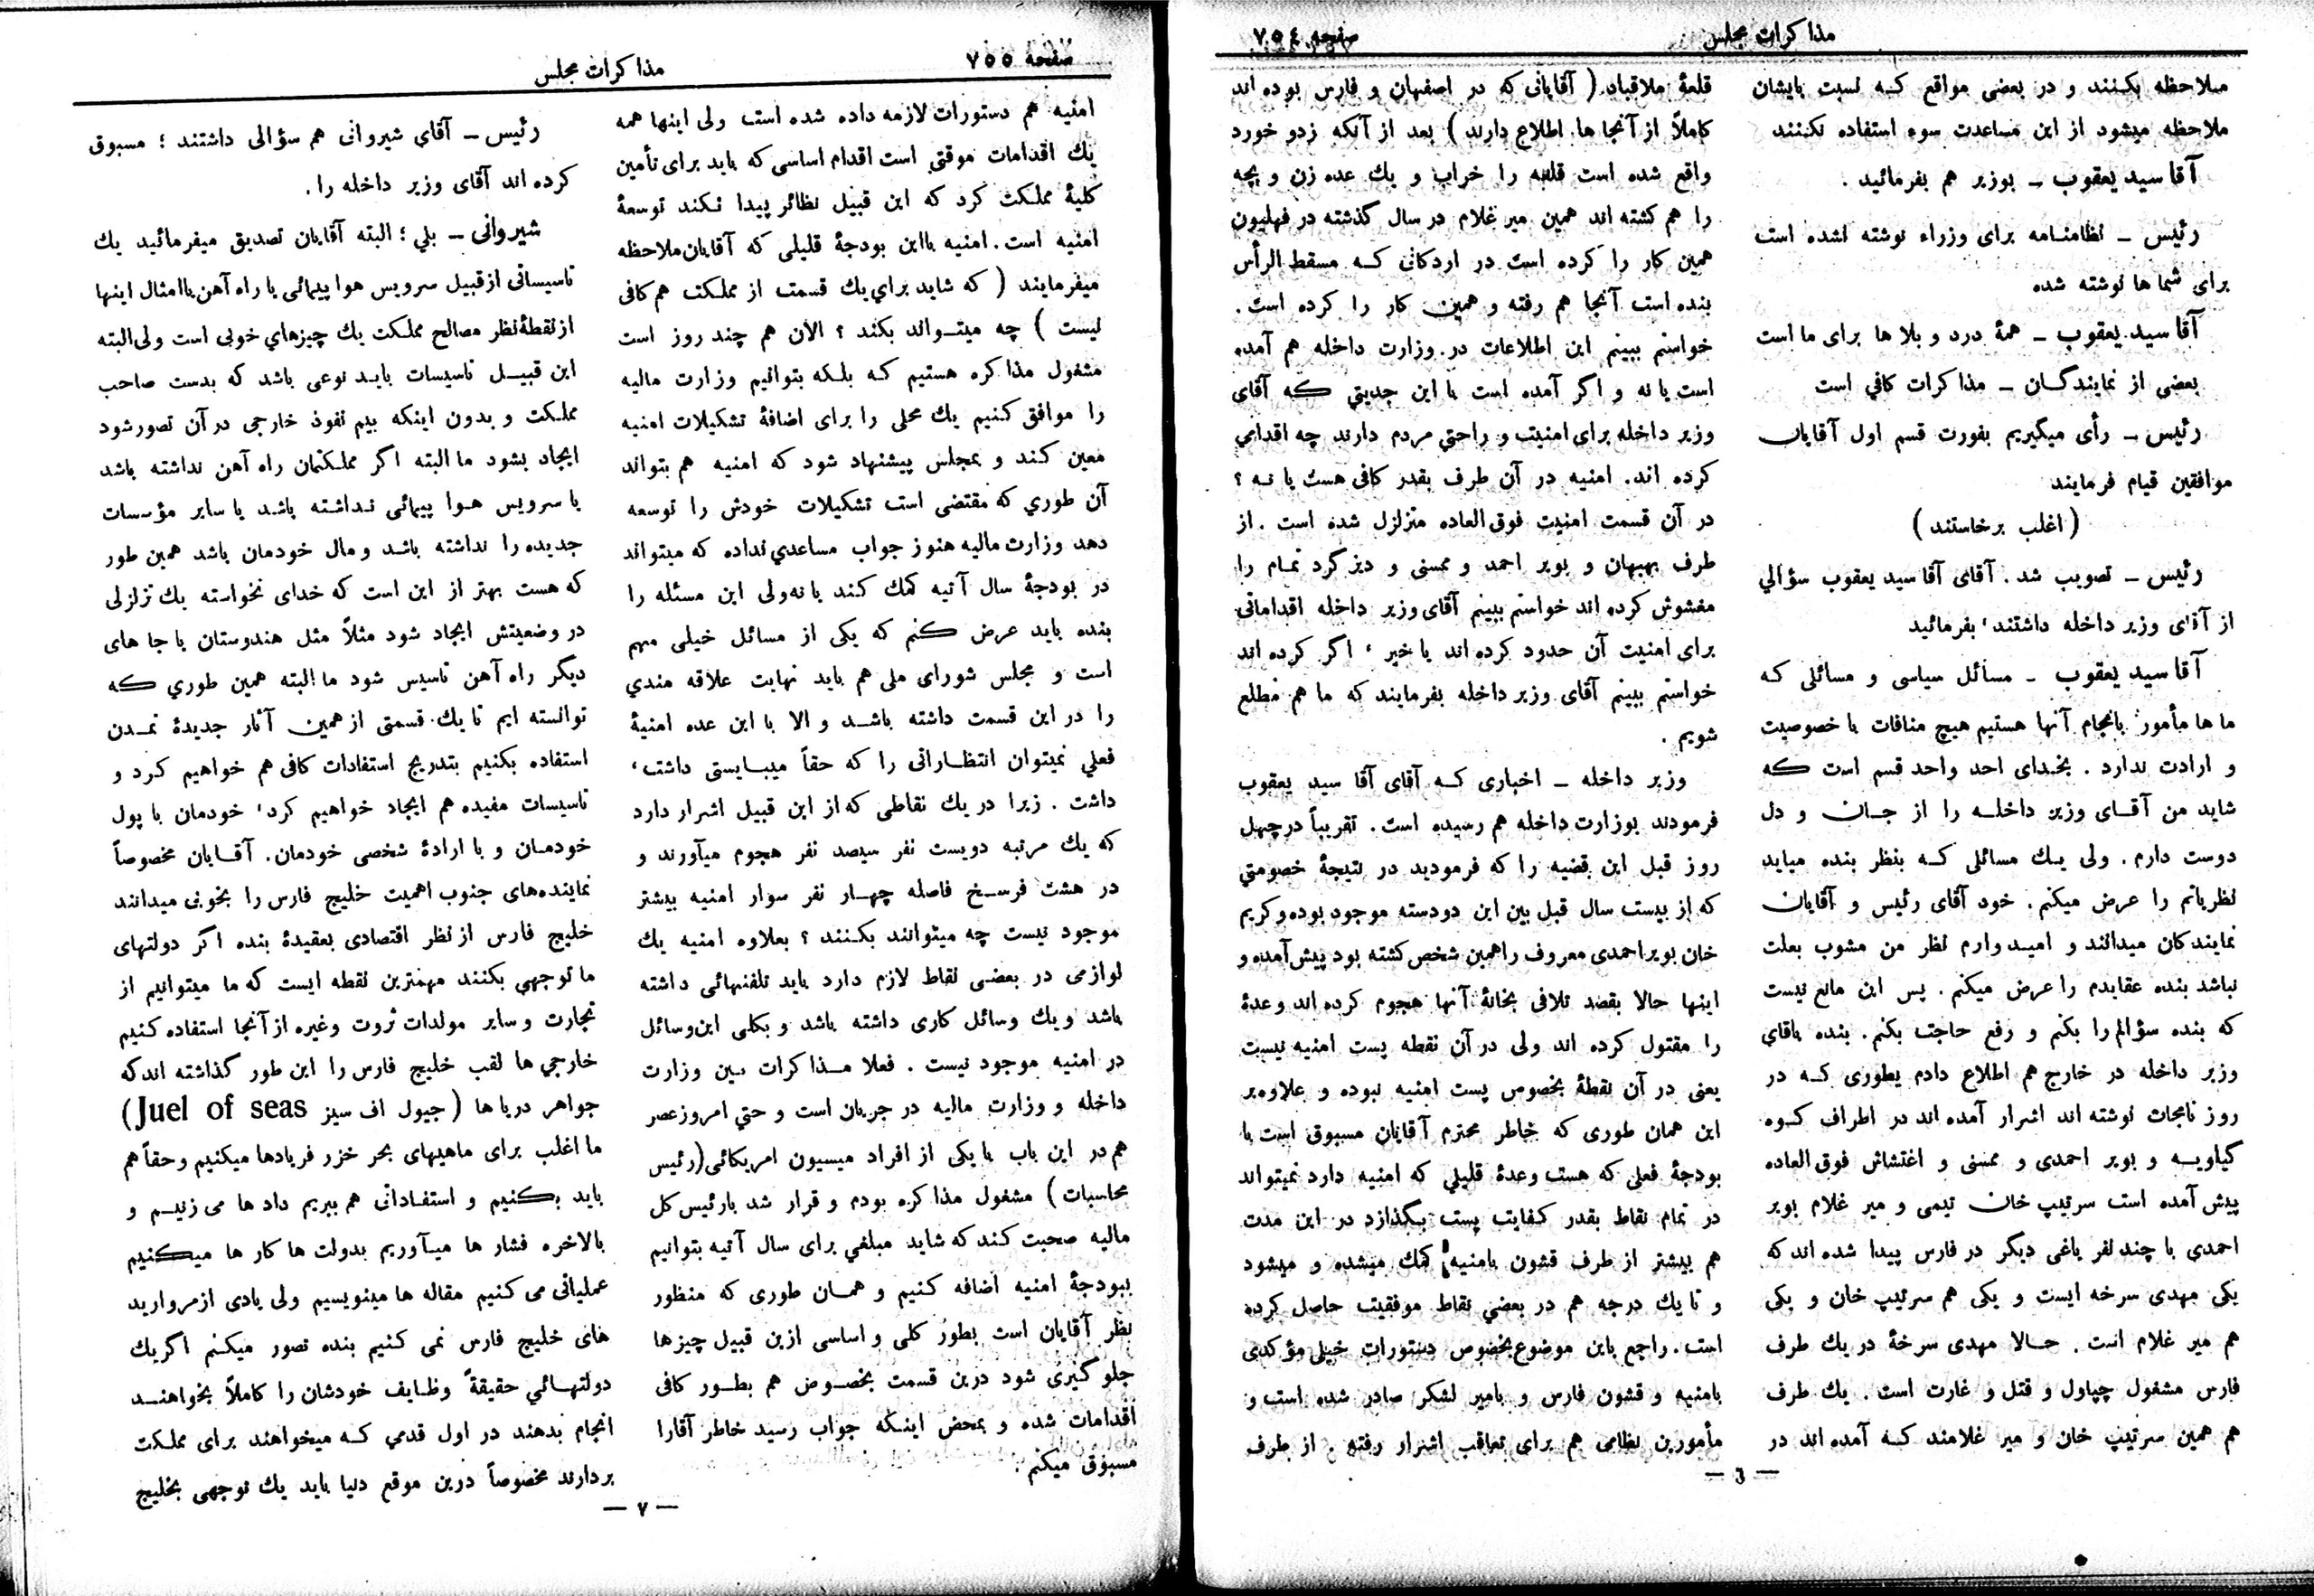 مذاکرات مجلس
صفحه ٧٥٤
ملاحظه بکنند و در بعضی مواقع که نسبت بایشان
ملاحظه میشود از این مساعدت سوء استفاده نکنند
آقا سید یعقوب ــ بوزیر هم بفرمائید .
رئیس ــ نظامنامه برای وزراء نوشته نشده است
برای شما ها نوشته شده
آقا سید یعقوب ــ همهٔ درد و بلا ها برای ما است
بعضی از نمایندگان ــ مذاکرات کافی است
رئیس ــ رأی میگیریم بفوریت قسم اول آقایان
موافقین قیام فرمایند
( اغلب برخاستند )
رئیس ــ تصویب شد . آقای آقا سید یعقوب سؤالی
از آقای وزیر داخله داشتند ، بفرمائید
آقا سید یعقوب ــ مسائل سیاسی و مسائلی که
ما ها مأمور بانجام آنها هستیم هیچ منافات با خصوصیت
و ارادت ندارد . بخدای احد واحد قسم است که
شاید من آقای وزیر داخله را از جان و دل
دوست دارم . ولی یک مسائلی که بنظر بنده میاید
نظریاتم را عرض میکنم . خود آقای رئیس و آقایان
نمایندگان میدانند و امیدوارم نظر من مشوب بعلت
نباشد بنده عقایدم را عرض میکنم . پس این مانع نیست
که بنده سؤالم را بکنم و رفع حاجت بکنم . بنده باقای
وزیر داخله در خارج هم اطلاع دادم بطوری که در
روز نامجات نوشته اند اشرار آمده اند در اطراف کوه
کیلویه و بویر احمدی و ممسنی و اغتشاش فوق العاده
پیش آمده است سرتیپ خان تیمی و میر غلام بویر
احمدی با چند نفر یاغی دیگر در فارس پیدا شده اند که
یکی مهدی سرخه ایست و یکی هم سرتیپ خان و یکی
هم میر غلام است . حالا مهدی سرخهٔ در یک طرف
فارس مشغول چپاول و قتل و غارت است . یک طرف
هم همین سرتیپ خان و میر غلامند که آمده اند در
قلعهٔ ملاقباد ( آقایانی که در اصفهان و فارس بوده اند
کاملاً از آنجا ها اطلاع دارند ) بعد از آنکه زدو خورد
واقع شده است قلعه را خراب و یک عده زن و بچه
را هم کشته اند همین میر غلام در سال گذشته در فهلیون
همین کار را کرده است در اردکانی که مسقط الرأس
بنده است آنجا هم رفته و همین کار را کرده است .
خواستم ببینم این اطلاعات در وزارت داخله هم آمده
است یا نه و اگر آمده است با این جدیتی که آقای
وزیر داخله برای امنیت و راحتی مردم دارند چه اقدامی
کرده اند . امنیه در آن طرف بقدر کافی هست یا نه ؟
در آن قسمت امنیت فوق العاده متزلزل شده است . از
طرف بهبهان و بویر احمد و ممسنی و دیز کرد تمام را
مغشوش کرده اند خواستم ببینم آقای وزیر داخله اقداماتی
برای امنیت آن حدود کرده اند یا خیر ، اگر کرده اند
خواستم ببینم آقای وزیر داخله بفرمایند که ما هم مطلع
شویم .
وزیر داخله ــ اخباری که آقای آقا سید یعقوب
فرمودند بوزارت داخله هم رسیده است . تقریباً در چهل
روز قبل این قضیه را که فرمودید در نتیجهٔ خصومتی
که از بیست سال قبل بین این دودسته موجود بوده و کریم
خان بویر احمدی معروف را همین شخص کشته بود پیش آمده و
اینها حالا بقصد تلافی بخانهٔ آنها هجوم کرده اند و عدهٔ
را مقتول کرده اند ولی در آن نقطه پست امنیه نیست
یعنی در آن نقطهٔ بخصوص پست امنیه نبوده و علاوه بر
این همان طوری که خاطر محترم آقایان مسبوق است با
بودجهٔ فعلی که هست و عدهٔ قلیلی که امنیه دارد نمیتواند
در تمام نقاط بقدر کفایت پست بگذارد در این مدت
هم بیشتر از طرف قشون بامنیه کمک میشده و میشود
و تا یک درجه هم در بعضی نقاط موفقیت حاصل کرده
است . راجع باین موضوع بخصوص دستورات خیلی مؤکدی
بامنیه و قشون فارس و بامیر لشکر صادر شده است و
مأمورین نظامی هم برای تعاقب اشرار رفته . از طرف
— ٦ —
صفحه ٧٥٥
مذاکرات مجلس
امنیه هم دستورات لازمه داده شده است ولی اینها همه
یک اقدامات موقتی است اقدام اساسی که باید برای تأمین
کلیهٔ مملکت کرد که این قبیل نظائر پیدا نکند توسعهٔ
امنیه است . امنیه بااین بودجهٔ قلیلی که آقایان ملاحظه
میفرمایند ( که شاید برای یک قسمت از مملکت هم کافی
نیست ) چه میتواند بکند ؟ الان هم چند روز است
مشغول مذاکره هستیم که بلکه بتوانیم وزارت مالیه
را موافق کنیم یک محلی را برای اضافهٔ تشکیلات امنیه
معین کند و بمجلس پیشنهاد شود که امنیه هم بتواند
آن طوری که مقتضی است تشکیلات خودش را توسعه
دهد وزارت مالیه هنوز جواب مساعدی نداده که میتواند
در بودجهٔ سال آتیه کمک کند یا نه ولی این مسئله را
بنده باید عرض کنم که یکی از مسائل خیلی مهم
است و مجلس شورای ملی هم باید نهایت علاقه مندی
را در این قسمت داشته باشد و الا با این عده امنیهٔ
فعلی نمیتوان انتظاراتی را که حقاً میبایستی داشت ،
داشت . زیرا در یک نقاطی که از این قبیل اشرار دارد
که یک مرتبه دویست نفر سیصد نفر هجوم میآورند و
در هشت فرسخ فاصله چهار نفر سوار امنیه بیشتر
موجود نیست چه میتوانند بکنند ؟ بعلاوه امنیه یک
لوازمی در بعضی نقاط لازم دارد باید تلفنهائی داشته
باشد و یک وسائل کاری داشته باشد و بکلی این وسائل
در امنیه موجود نیست . فعلا مذاکرات بین وزارت
داخله و وزارت مالیه در جریان است و حتی امروز عصر
هم در این باب با یکی از افراد میسیون امریکائی (رئیس
محاسبات) مشغول مذاکره بودم و قرار شد بارئیس کل
مالیه صحبت کند که شاید مبلغی برای سال آتیه بتوانیم
ببودجهٔ امنیه اضافه کنیم و همان طوری که منظور
نظر آقایان است بطور کلی و اساسی ازین قبیل چیزها
جلوگیری شود درین قسمت بخصوص هم بطور کافی
اقدامات شده و بمحض اینکه جواب رسید خاطر آقارا
مسبوق میکنم .
رئیس ــ آقای شیروانی هم سؤالی داشتند ؛ مسبوق
کرده اند آقای وزیر داخله را .
شیروانی ــ بلی ؛ البته آقایان تصدیق میفرمائید یک
تاسیساتی از قبیل سرویس هوا پیمائی یا راه آهن یا امثال اینها
از نقطهٔ نظر مصالح مملکت یک چیزهای خوبی است ولی البته
این قبیل تاسیسات باید نوعی باشد که بدست صاحب
مملکت و بدون اینکه بیم نفوذ خارجی در آن تصور شود
ایجاد بشود ما البته اگر مملکتمان راه آهن نداشته باشد
یا سرویس هوا پیمائی نداشته باشد یا سایر مؤسسات
جدیده را نداشته باشد و مال خودمان باشد همین طور
که هست بهتر از این است که خدای نخواسته یک تزلزلی
در وضعیتش ایجاد شود مثلاً مثل هندوستان یا جا های
دیگر راه آهن تاسیس شود ما البته همین طوری که
توانسته ایم تا یک قسمتی از همین آثار جدیدهٔ تمدن
استفاده بکنیم بتدریج استفادات کافی هم خواهیم کرد و
تاسیسات مفیده هم ایجاد خواهیم کرد ، خودمان با پول
خودمان و با ارادهٔ شخصی خودمان . آقایان مخصوصاً
نماینده‌های جنوب اهمیت خلیج فارس را بخوبی میدانند
خلیج فارس از نظر اقتصادی بعقیدهٔ بنده اگر دولتهای
ما توجهی بکنند مهمترین نقطه ایست که ما میتوانیم از
تجارت و سایر مولدات ثروت وغیره از آنجا استفاده کنیم
خارجی ها لقب خلیج فارس را این طور گذاشته اند که
جواهر دریا ها ( جیول اف سیز Juel of seas)
ما اغلب برای ماهیهای بحر خزر فریادها میکنیم وحقاً هم
باید بکنیم و استفاداتی هم ببریم داد ها می زنیم و
بالاخره فشار ها میآوریم بدولت ها کار ها میکنیم
عملیاتی می کنیم مقاله ها مینویسیم ولی یادی از مروارید
های خلیج فارس نمی کنیم بنده تصور میکنم اگر یک
دولتهائی حقیقةً وظایف خودشان را کاملاً بخواهند
انجام بدهند در اول قدمی که میخواهند برای مملکت
بردارند مخصوصاً درین موقع دنیا باید یک توجهی بخلیج
— ٧ —